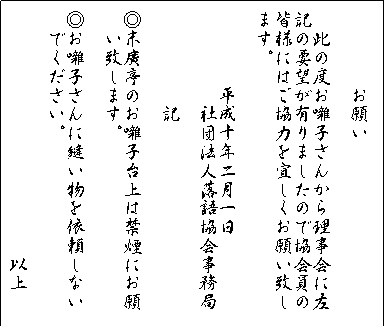 お願い
此の度お囃子さんから理事会に左
記の要望が有りましたので協会員の
皆様にはご協力を宜しくお願い致し
ます。
平成十年二月一日
社団法人落語協会事務局
記
◎末廣亭のお囃子台上は禁煙にお願
い致します。
◎お囃子さんに縫い物を依頼しない
でください。
以上